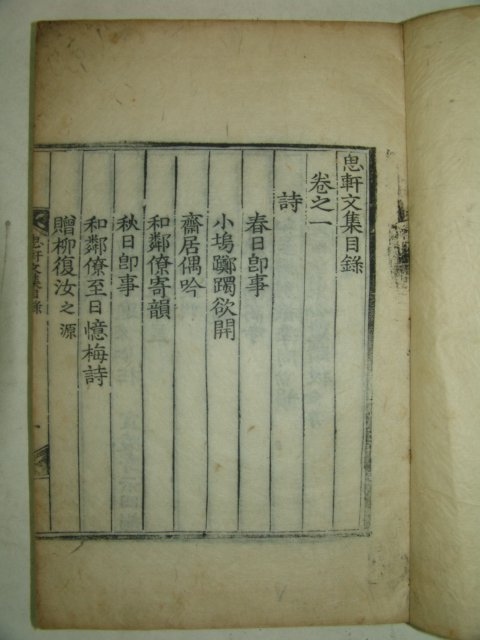 思軒文集目錄
卷之一
詩
春日卽事
小塢躑躅欲開
齋居偶吟
和鄰僚寄韻
秋日卽事
和鄰僚至日憶梅詩
贈柳復汝之源
思軒文集目錄